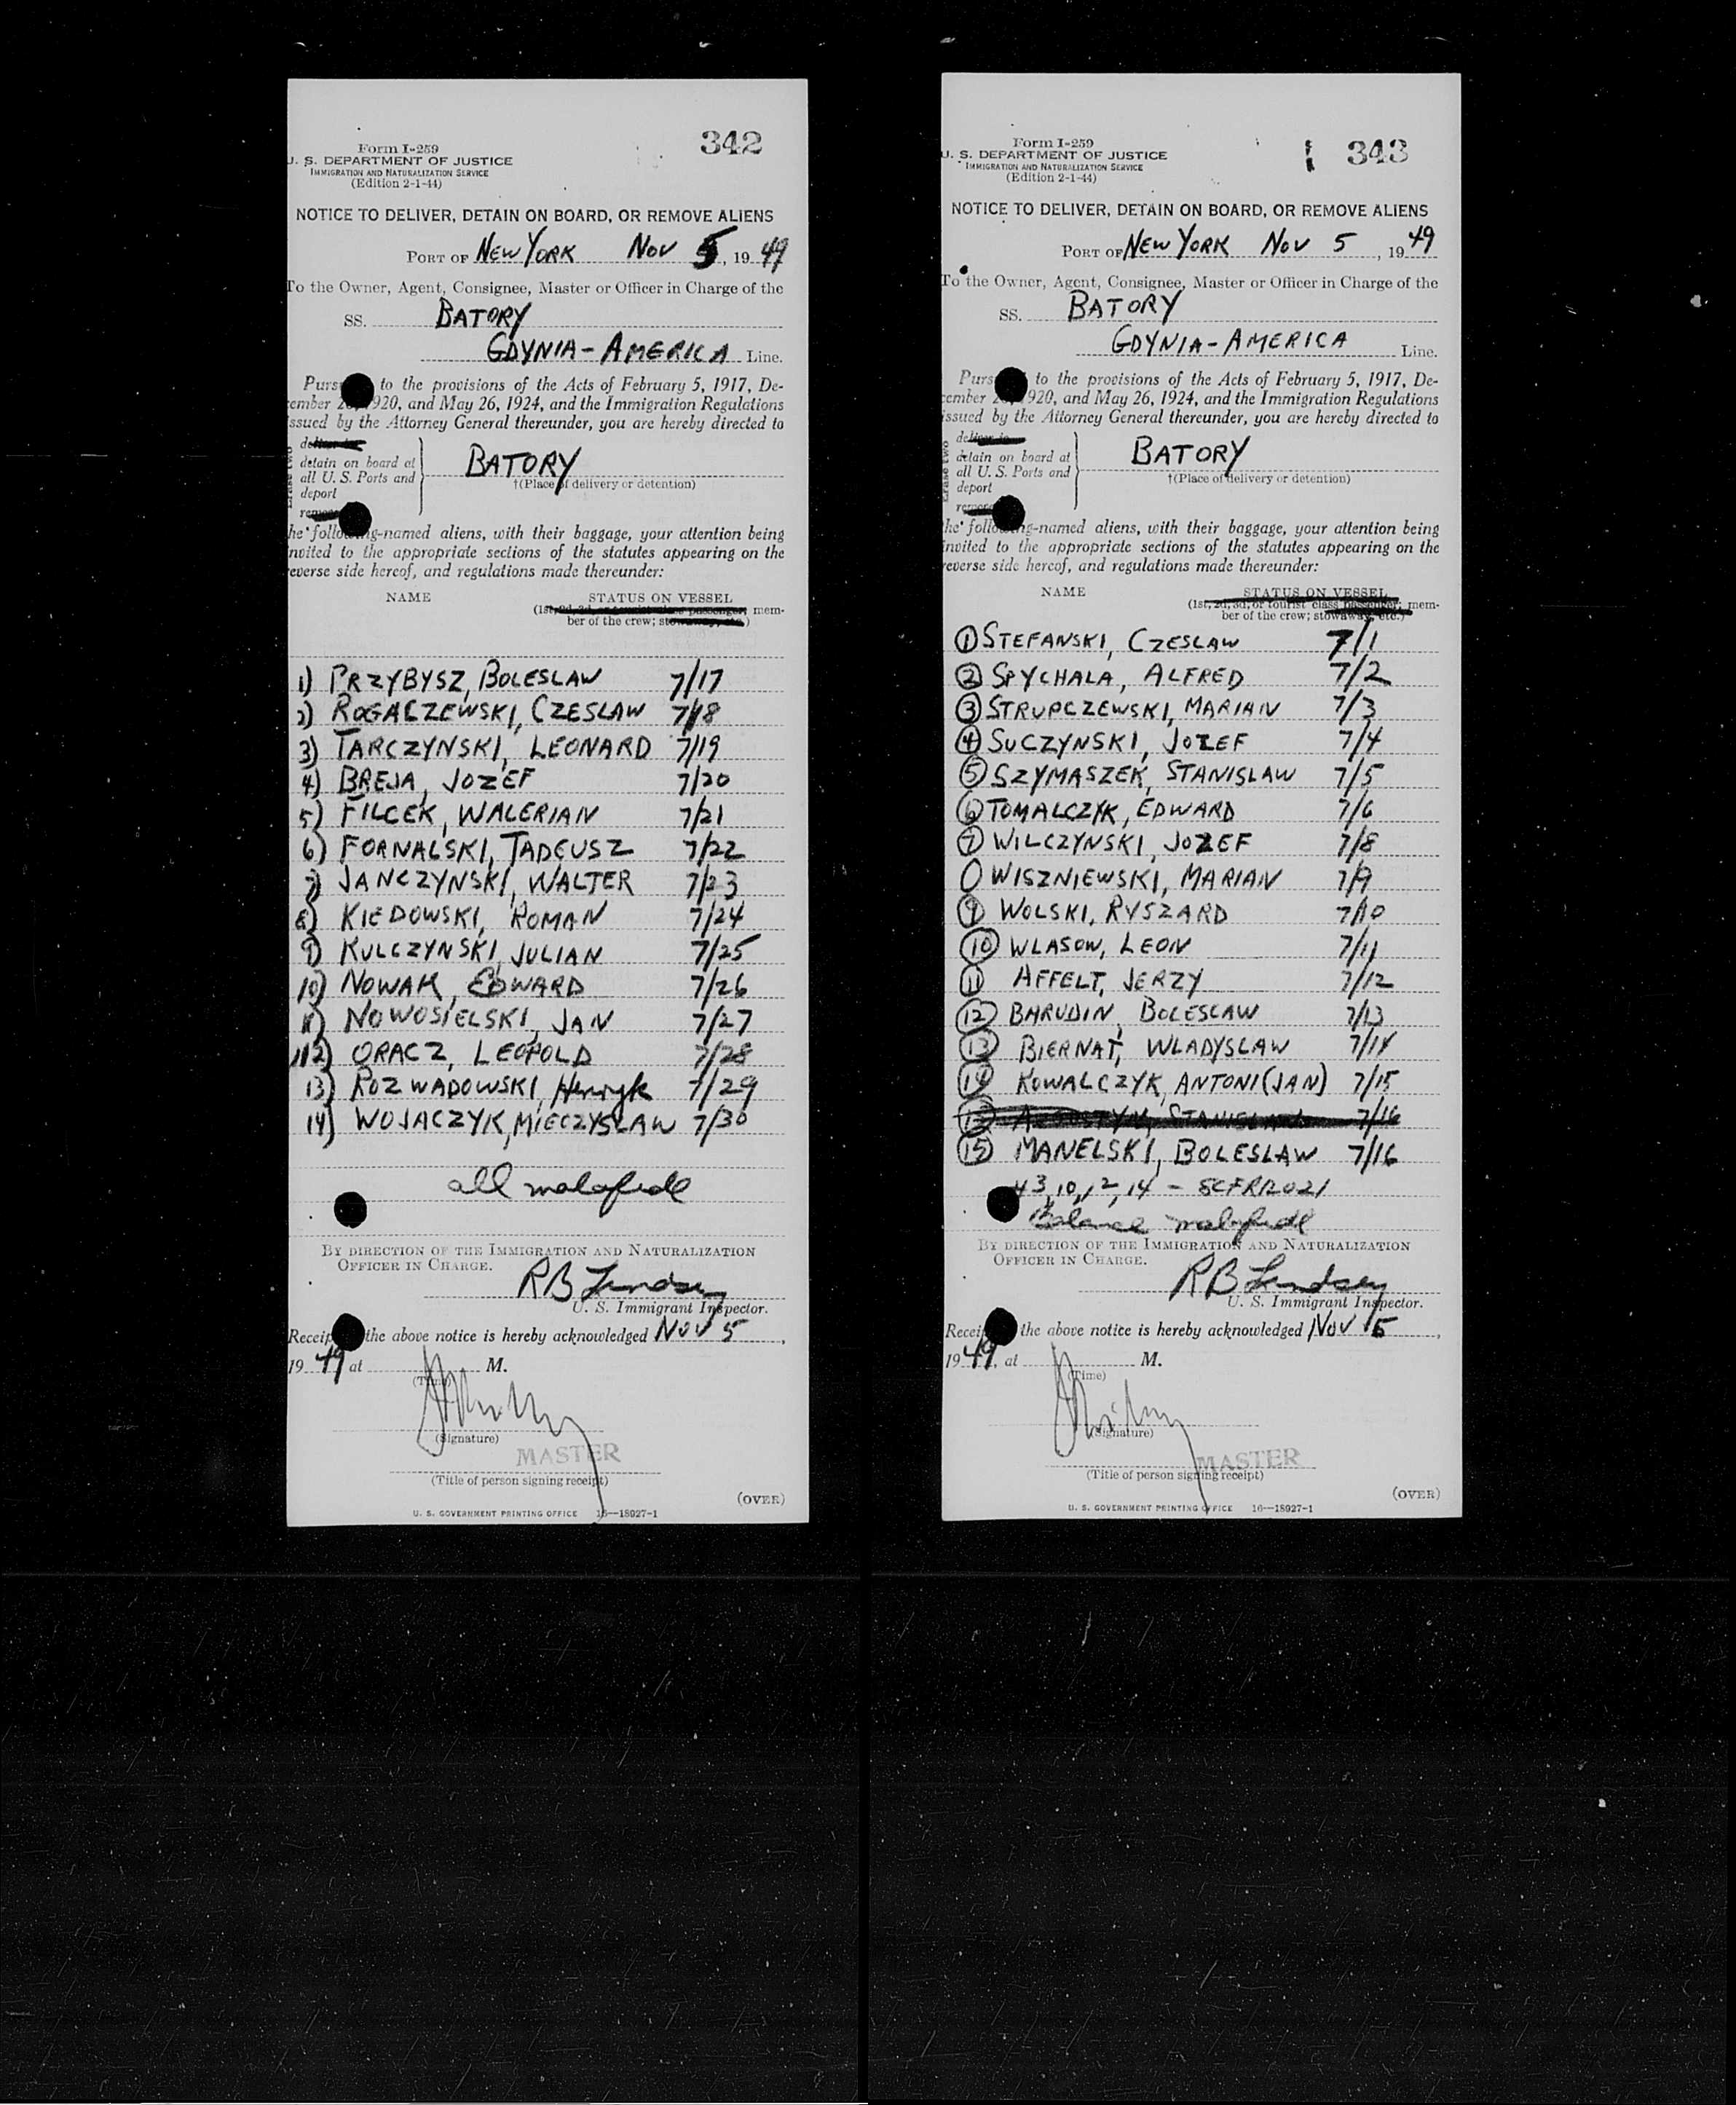 342
Form I-259
U. S. DEPARTMENT OF JUSTICE
IMMIGRATION AND NATURALIZATION SERVICE
(Edition 2-1-44)
NOTICE TO DELIVER, DETAIN ON BOARD, OR REMOVE ALIENS
PORT OF NEW YORK NOV 5, 19 49
To the Owner, Agent, Consignee, Master or Officer in Charge of the
SS. BATORY
GDYNIA-AMERICA Line.
Purs to the provisions of the Acts of February 5, 1917, De-
cember 920, and May 26, 1924, and the Immigration Regulations
issued by the Attorney General thereunder, you are hereby directed to
detain on board at
all U. S. Ports and
deport
BATORY
†(Place of delivery or detention)
the following-named aliens, with their baggage, your attention being
invited to the appropriate sections of the statutes appearing on the
reverse side hereof, and regulations made thereunder:
NAME STATUS ON VESSEL
(1st, 2d, 3d, or tourist class passenger; mem-
ber of the crew; stowaway, etc.)
1) PRZYBYSZ, BOLESLAW 7/17
2) ROGACZEWSKI, CZESLAW 7/18
3) TARCZYNSKI, LEONARD 7/19
4) BREJA, JOZEF 7/20
5) FILCEK, WALERIAN 7/21
6) FORNALSKI, TADEUSZ 7/22
7) JANCZYNSKI, WALTER 7/23
8) KIEDOWSKI, ROMAN 7/24
9) KULCZYNSKI, JULIAN 7/25
10) NOWAK, EDWARD 7/26
11) NOWOSIELSKI, JAN 7/27
12) ORACZ, LEOPOLD 7/28
13) ROZWADOWSKI, Henryk 7/29
14) WOJACZYK, MIECZYSLAW 7/30
all malafide
BY DIRECTION OF THE IMMIGRATION AND NATURALIZATION
OFFICER IN CHARGE.
RB Lindsey
U. S. Immigrant Inspector.
Receip the above notice is hereby acknowledged NOV 5,
19 49 at M.
(Time)
(Signature)
MASTER
(Title of person signing receipt)
(OVER)
U. S. GOVERNMENT PRINTING OFFICE 16—18927-1
343
Form I-259
U. S. DEPARTMENT OF JUSTICE
IMMIGRATION AND NATURALIZATION SERVICE
(Edition 2-1-44)
NOTICE TO DELIVER, DETAIN ON BOARD, OR REMOVE ALIENS
PORT OF NEW YORK NOV 5, 19 49
To the Owner, Agent, Consignee, Master or Officer in Charge of the
SS. BATORY
GDYNIA-AMERICA Line.
Purs to the provisions of the Acts of February 5, 1917, De-
cember 920, and May 26, 1924, and the Immigration Regulations
issued by the Attorney General thereunder, you are hereby directed to
Erase two
detain on board at
all U. S. Ports and
deport
BATORY
†(Place of delivery or detention)
the following-named aliens, with their baggage, your attention being
invited to the appropriate sections of the statutes appearing on the
reverse side hereof, and regulations made thereunder:
NAME STATUS ON VESSEL
(1st, 2d, 3d, or tourist class passenger; mem-
ber of the crew; stowaway, etc.)
1 STEFANSKI, CZESLAW 7/1
2 SPYCHALA, ALFRED 7/2
3 STRUPCZEWSKI, MARIAN 7/3
4 SUCZYNSKI, JOZEF 7/4
5 SZYMASZEK, STANISLAW 7/5
6 TOMALCZYK, EDWARD 7/6
7 WILCZYNSKI, JOZEF 7/8
0 WISZNIEWSKI, MARIAN 7/9
9 WOLSKI, RYSZARD 7/10
10 WLASOW, LEON 7/11
11 AFFELT, JERZY 7/12
12 BARUDIN, BOLESLAW 7/13
13 BIERNAT, WLADYSLAW 7/14
14 KOWALCZYK, ANTONI (JAN) 7/15
7/16
15 MANELSKI, BOLESLAW 7/16
3, 10, 12, 14 -
Balance malafide
BY DIRECTION OF THE IMMIGRATION AND NATURALIZATION
OFFICER IN CHARGE.
RB Lindsey
U. S. Immigrant Inspector.
Recei the above notice is hereby acknowledged NOV 5,
19 49, at M.
(Time)
(Signature)
MASTER
(Title of person signing receipt)
(OVER)
U. S. GOVERNMENT PRINTING OFFICE 16—18927-1